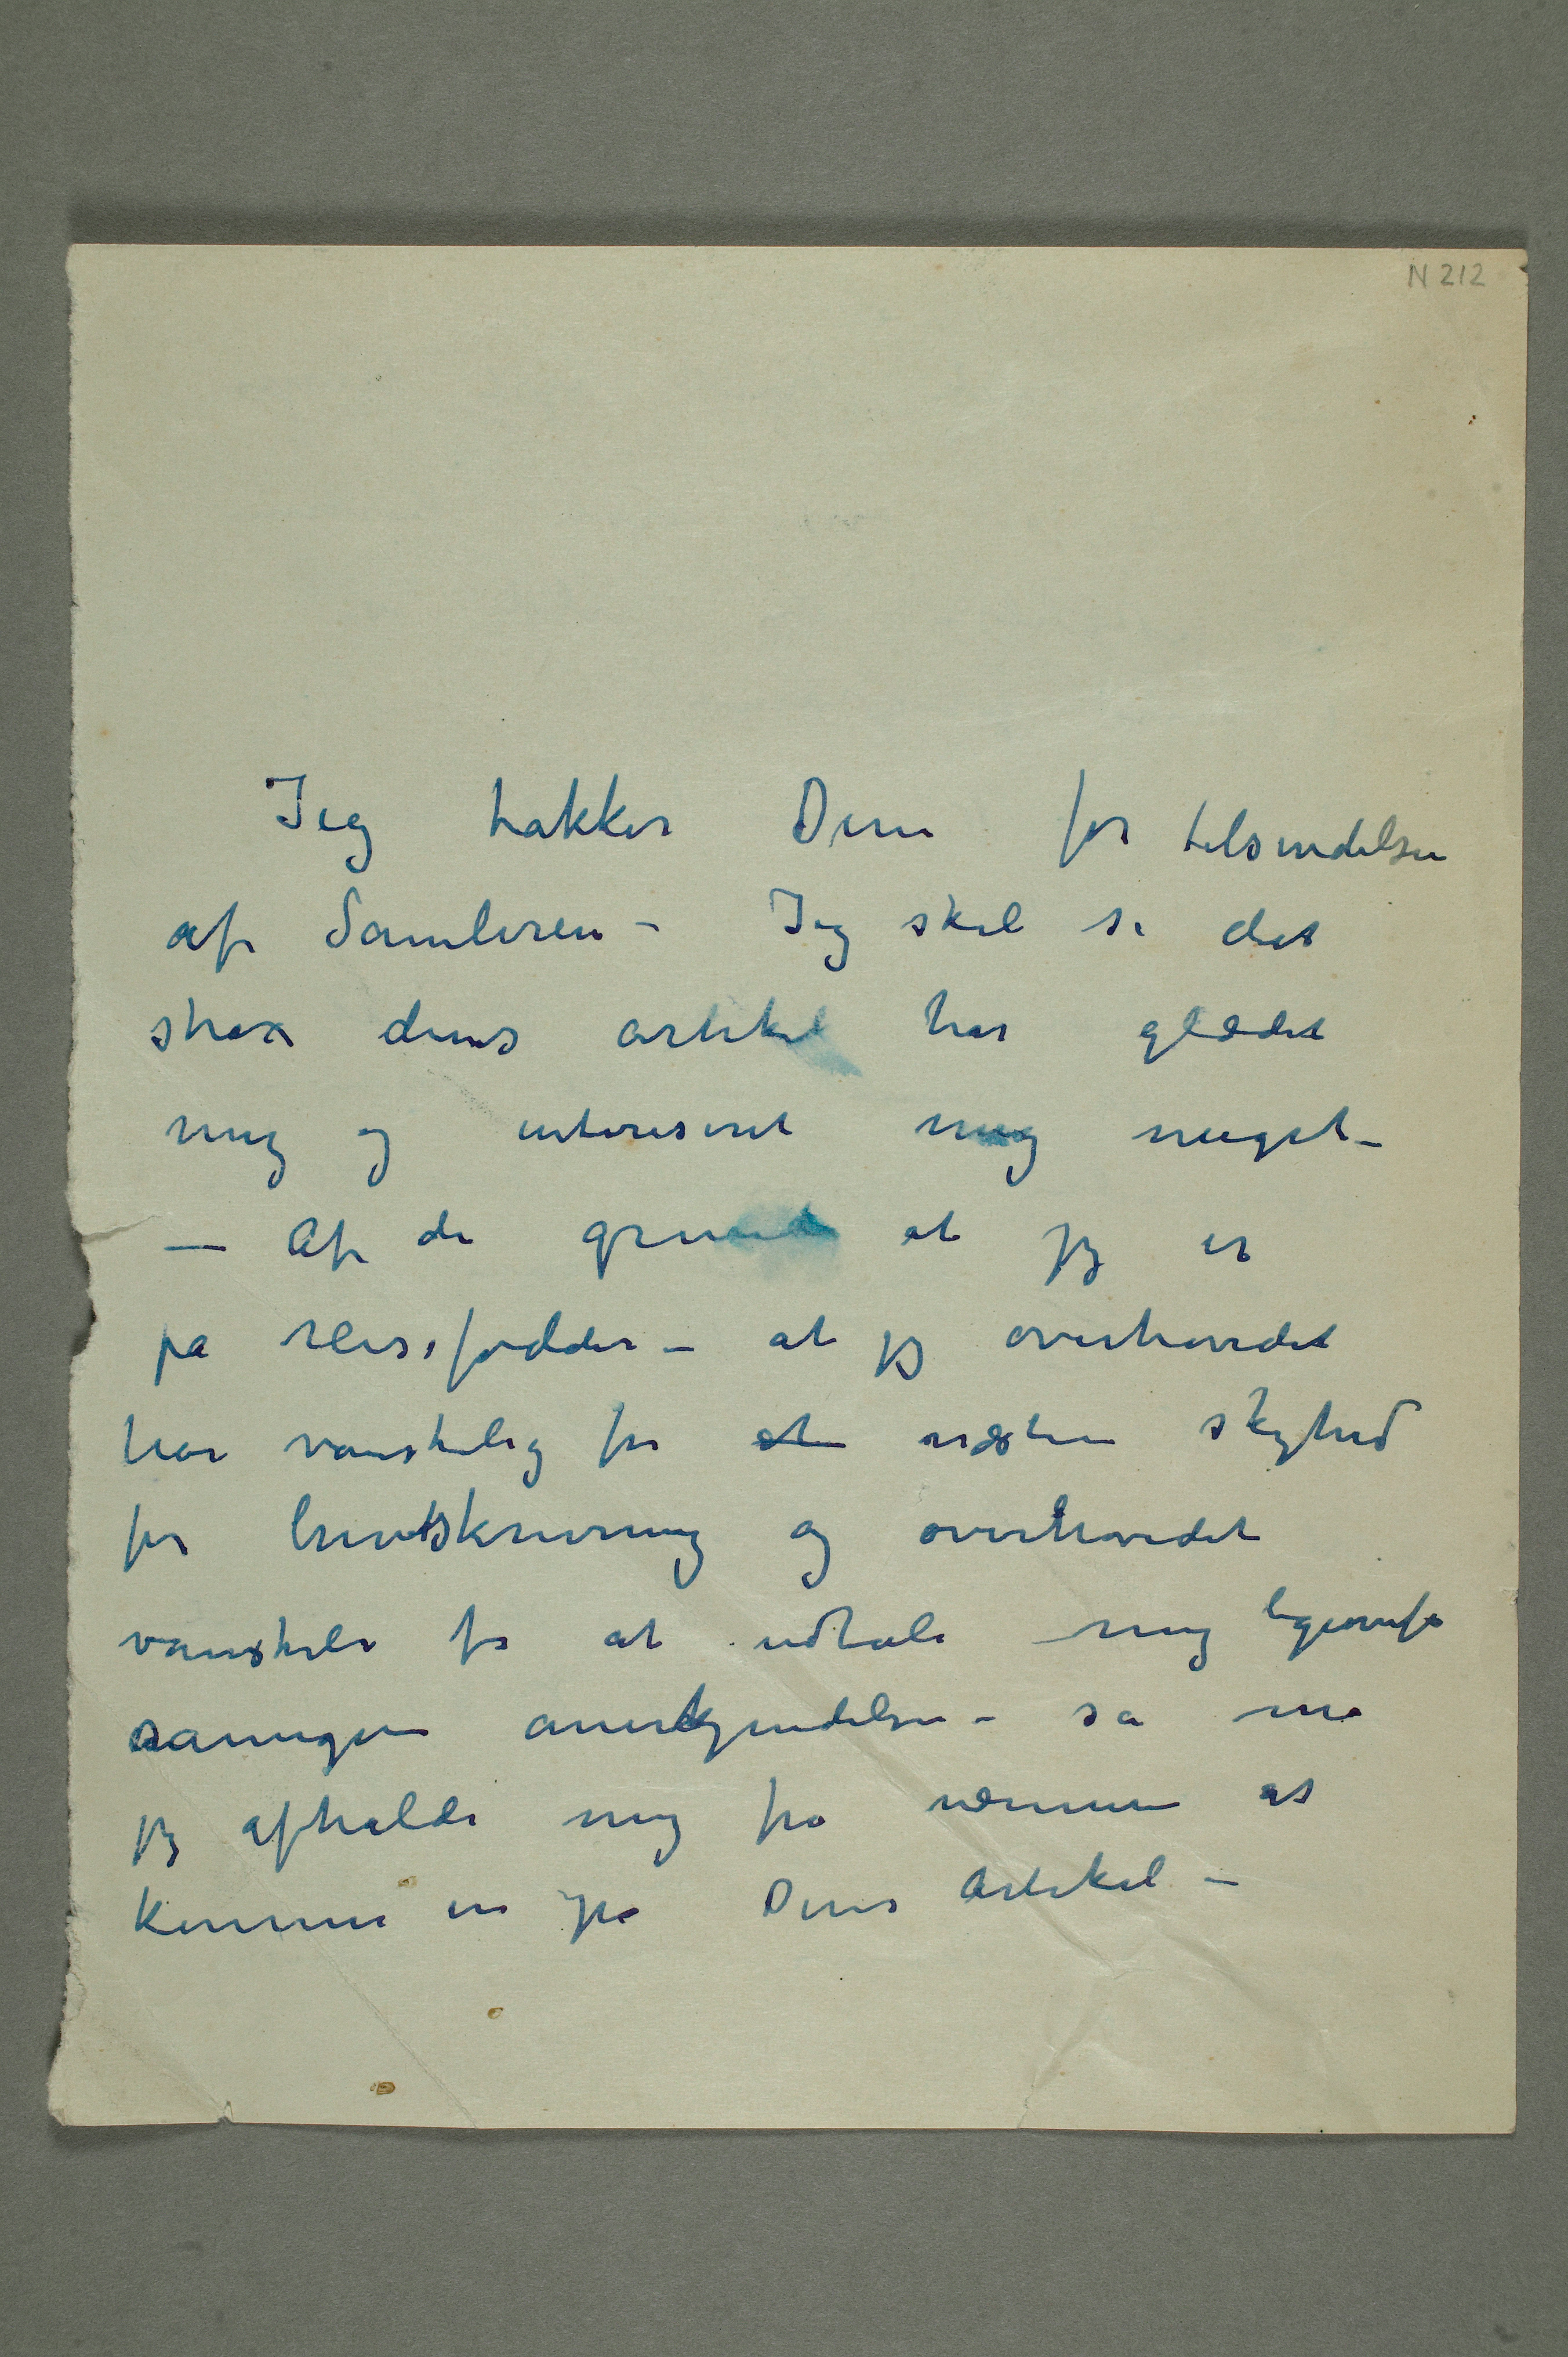 N 212
Jeg takker Dem for tilsendelsen
af Samleren – Jeg skal si det
strax deres artikel har glædet
mig og interesseret mig meget –
— Af de grund at jeg er
på reisefødder – at jeg overhovedet
har vanskelig for næsten skyhed
for brevskrivning og overhovedet
vanskeli for at udtale mig ligeoverfor
anerkjendelse – så må
jeg afholde mig fra nærmere at
komme in på Deres Artikel –